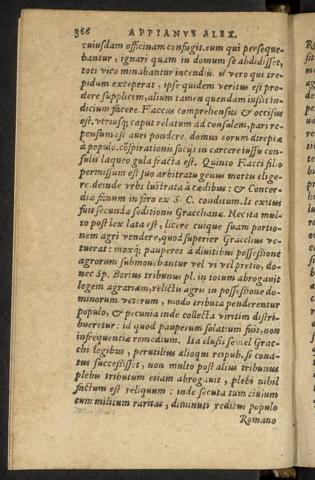 366 APPIANVS ALEX.
cuiusdam officinam confugit. eum qui perseque-
bantur, ignari quam in domum se abdidisset,
toti vico minabantur incendiũ. is vero qui tre-
pidum exceperat, ipse quidem veritus est pro-
dere supplicem, alium tamen quendam iussit in-
dicium facere. Flaccus comprehensus & occisus
est. vtriusq; caput relatum ad consulem, pari re-
pensum est auri pondere. domus eorum direptæ
à populo. cõspirationis socij in carcere iussu con-
sulis laqueo gula fracta est. Quinto Flacci filio
permissum est suo arbitratu genus mortis elige-
re. deinde vrbs lustrata à cædibus: & Concor-
diæ fanum in foro ex S. C. conditum. Is exitus
fuit secundæ seditionis Gracchanæ. Nec ita mul-
to post lex lata est, licere cuique suam portio-
nem agri vendere, quod superior Gracchus ve-
tuerat: moxq; pauperes à diuitibus possessione
agrorum submouebantur vel vi vel pretio, do-
nec Sp. Borius tribunus pl. in totum abrogauit
legem agrariam, relictis agris in possessione do-
minorum veterum, modo tributa penderentur
populo, & pecunia inde collecta viritim distri-
bueretur: id quod pauperum solatium fuit, non
infrequentiæ remedium. Ita elusis semel Grac-
chi legibus, perutilibus alioqui reipub. si cona-
tus successisset, non multo post alius tribunus
plebis tributum etiam abrogauit, plebi nihil
factum est reliquum: inde secuta tum ciuium
tum militum raritas, diminuti reditus populo
Romano